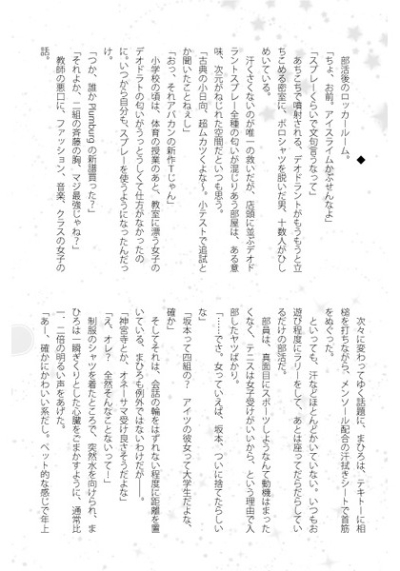 ◆
部活後のロッカールーム。
「ちょ、お前。アイスライムかぶせんなよ」
「スプレーくらいで文句言うなって」
あちこちで噴射される、デオドラントがもうもうと立
ちこめる密室に、ポロシャツを脱いだ男、十数人がひし
めいている。
汗くさくないのが唯一の救いだが、店頭に並ぶデオド
ラントスプレー全種の匂いが混じりあう部屋は、ある意
味、次元がねじれた空間だといつも思う。
「古典の小日向、超ムカツくよな～。小テストで追試と
か聞いたことねぇし」
「おっ、それアバカンの新作Ｔじゃん」
小学校の頃は、体育の授業のあと、教室に漂う女子の
デオドラトの匂いがうっとうしくて仕方がなかったの
に。いつから自分も、スプレーを使うようになったんだっ
け。
「つか、誰か Plumburg の新譜買った？」
「それよか、二組の斉藤の胸、マジ最強じゃね？」
教師の悪口に、ファッション、音楽、クラスの女子の
話。
次々に変わってゆく話題に、まひろは、テキトーに相
槌を打ちながら、メンソール配合の汗拭きシートで首筋
をぬぐった。
といっても、汗などほとんどかいていない。いつもお
遊び程度にラリーをして、あとは座ってだらだらしてい
るだけの部活だ。
部員は、真面目にスポーツしようなんて動機はまった
くなく、テニスは女子受けがいいから、という理由で入
部したヤツばかり。
「……でさ。女っていえば、坂本、ついに捨てたらしい
な」
「坂本って四組の？　アイツの彼女って大学生だよな、
確か」
そしてそれは、会話の輪をはずれない程度に距離を置
いている、まひろも例外ではないわけだが――。
「神宮寺とか、オネーサマ受けは良さそうだよな」
「え、オレ？　全然そんなことないって―」
制服のシャツを着たところで、突然水を向けられ、ま
ひろは一瞬ぎくりとした心臓をごまかすように、通常比
一、二倍の明るい声をあげた。
「あー、確かにかわいい系だし。ペット的な感じで年上